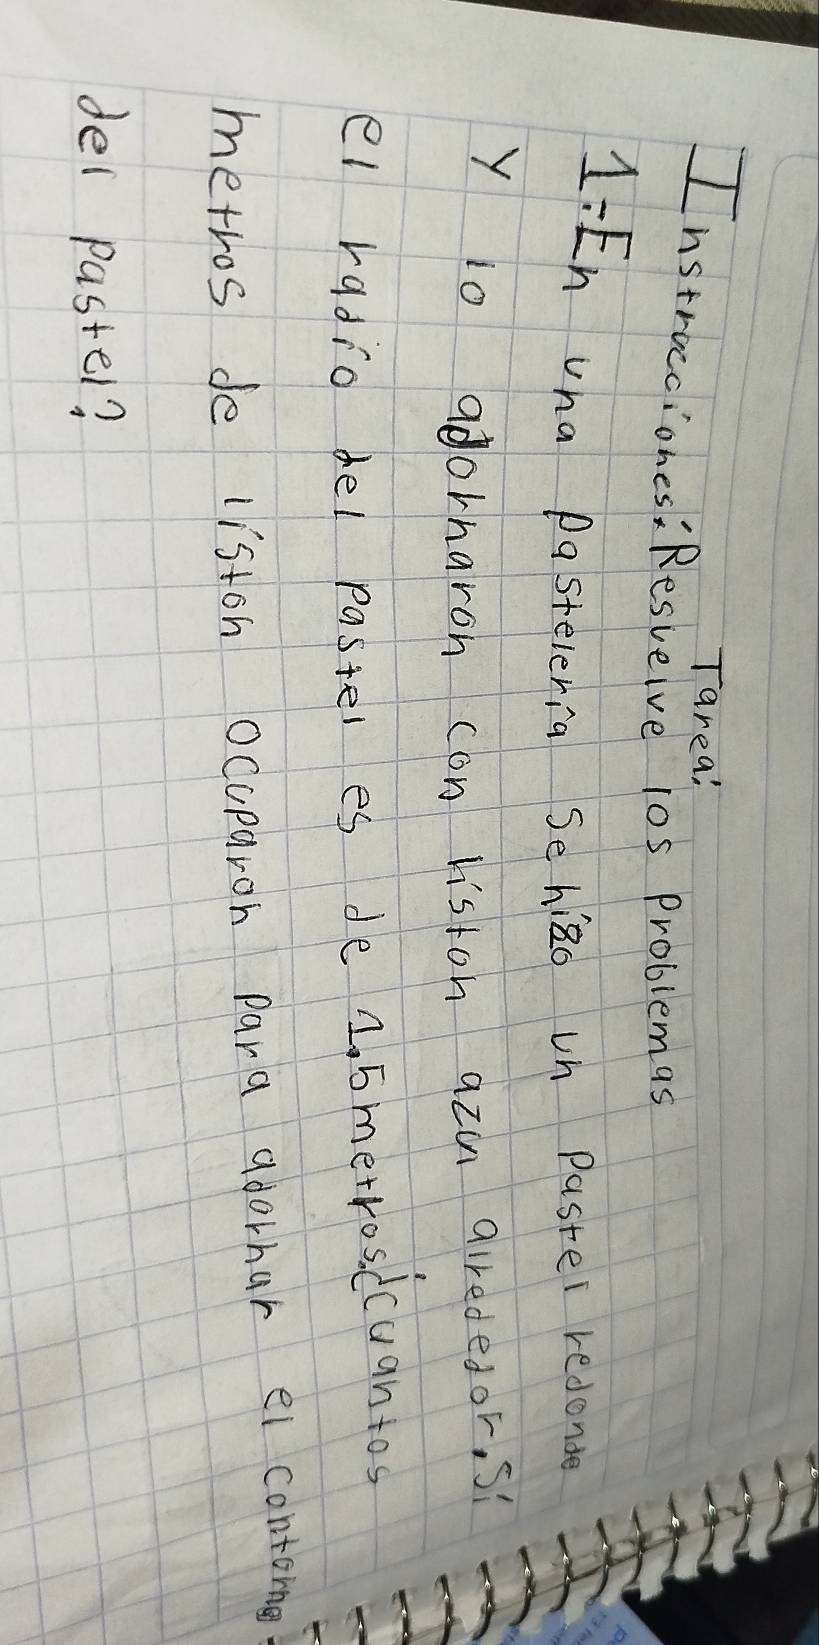 Tarea:
Instrucciones: Reslelve los problemas
1: En una pastelería se hizo un pastel redondo
y lo adornaron con liston azul alrededor, Si
el radio del pastel es de 1.5 metros ¿cuantos
metros de liston ocuparon para adornar el contorno
del pastel?